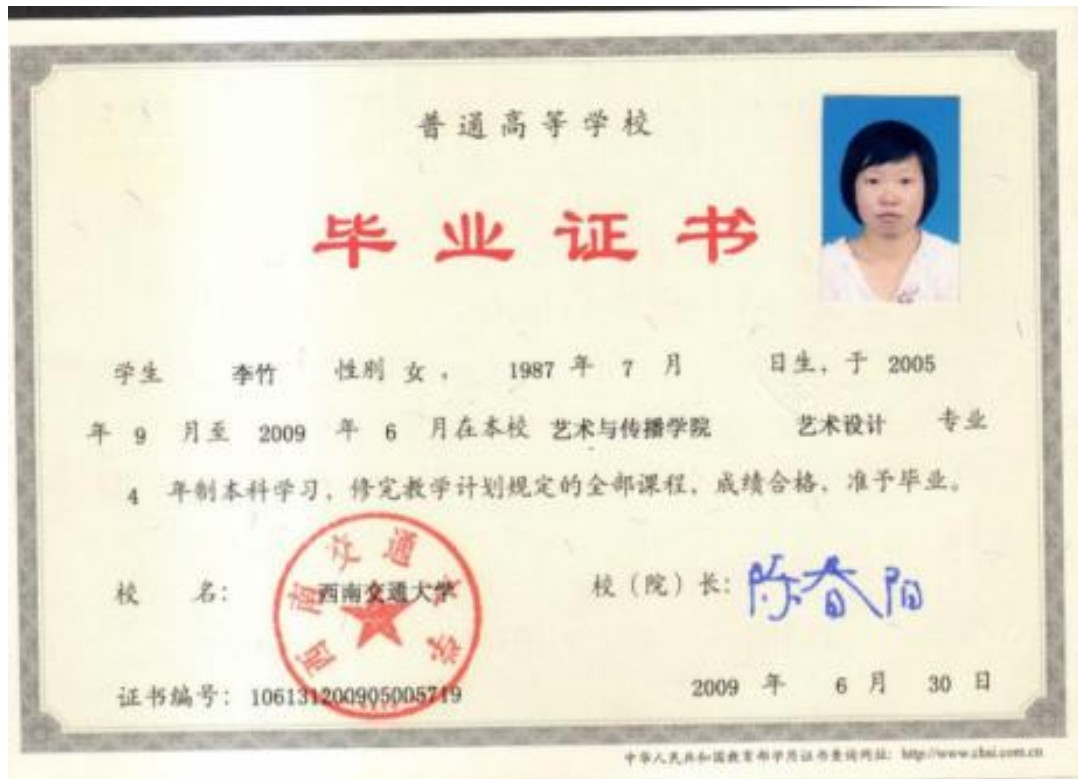 普通高等学校
毕业证书
学生 李竹 性别 女， 1987 年 7 月 日生，于 2005
年 9 月至 2009 年 6 月在本校 艺术与传播学院 艺术设计 专业
4 年制本科学习，修完教学计划规定的全部课程，成绩合格，准予毕业。
校 名： 西南交通大学 校（院）长： 陈春阳
西南交通大学
证书编号： 106131200905005719 2009 年 6 月 30 日
中华人民共和国教育部学历证书查询网址： http://www.chsi.com.cn